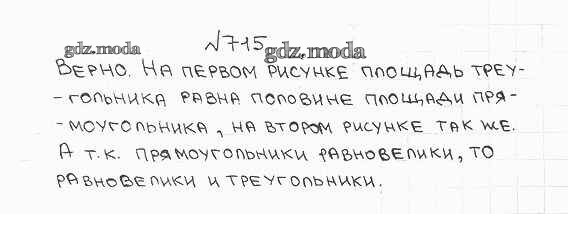 №715
gdz.moda gdz.moda
Верно. На первом рисунке площадь треу-
-гольника равна половине площади пря-
-моугольника, на втором рисунке так же.
А т.к. прямоугольники равновелики, то
равновелики и треугольники.